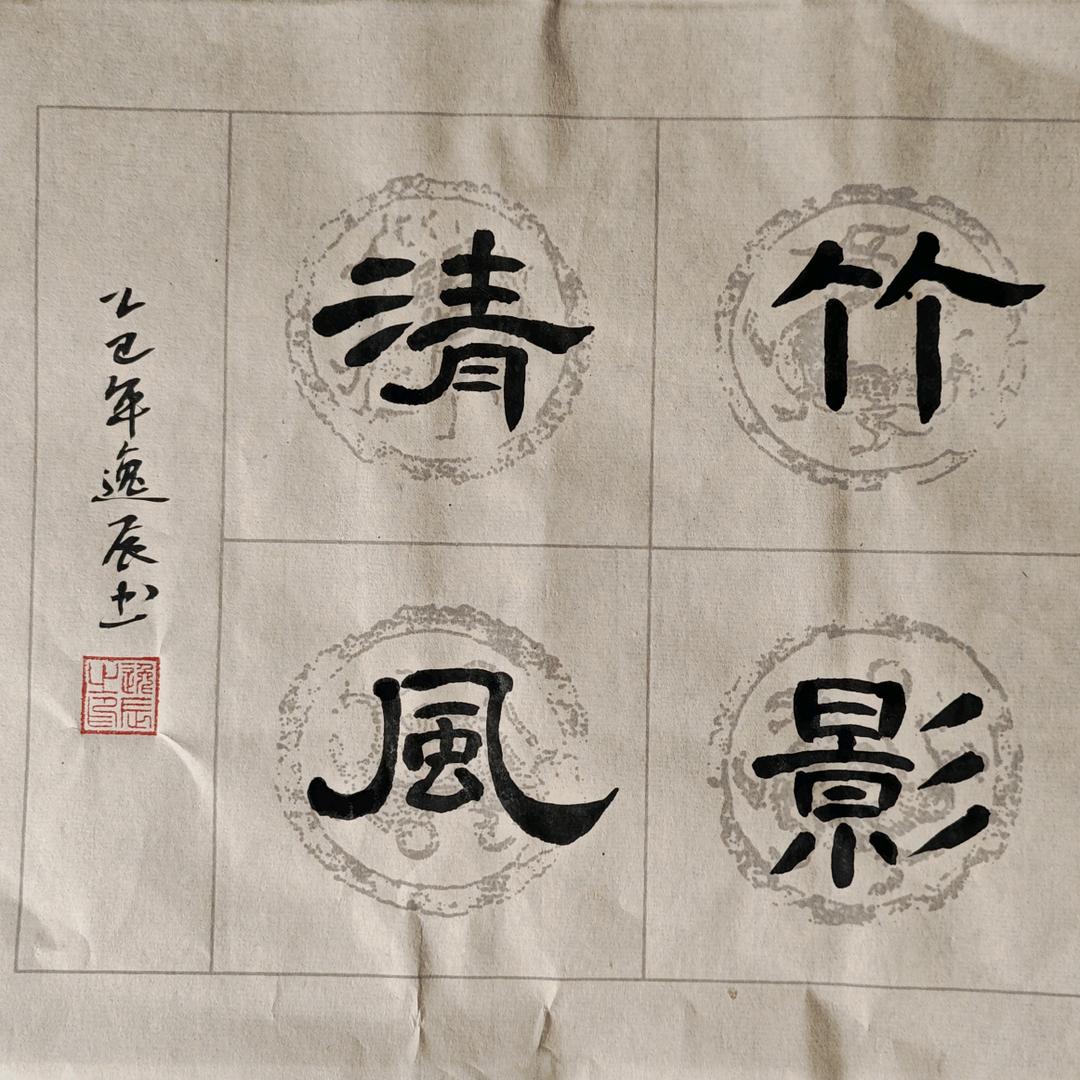 竹影
清風
乙巳年逸辰书
逸辰之印